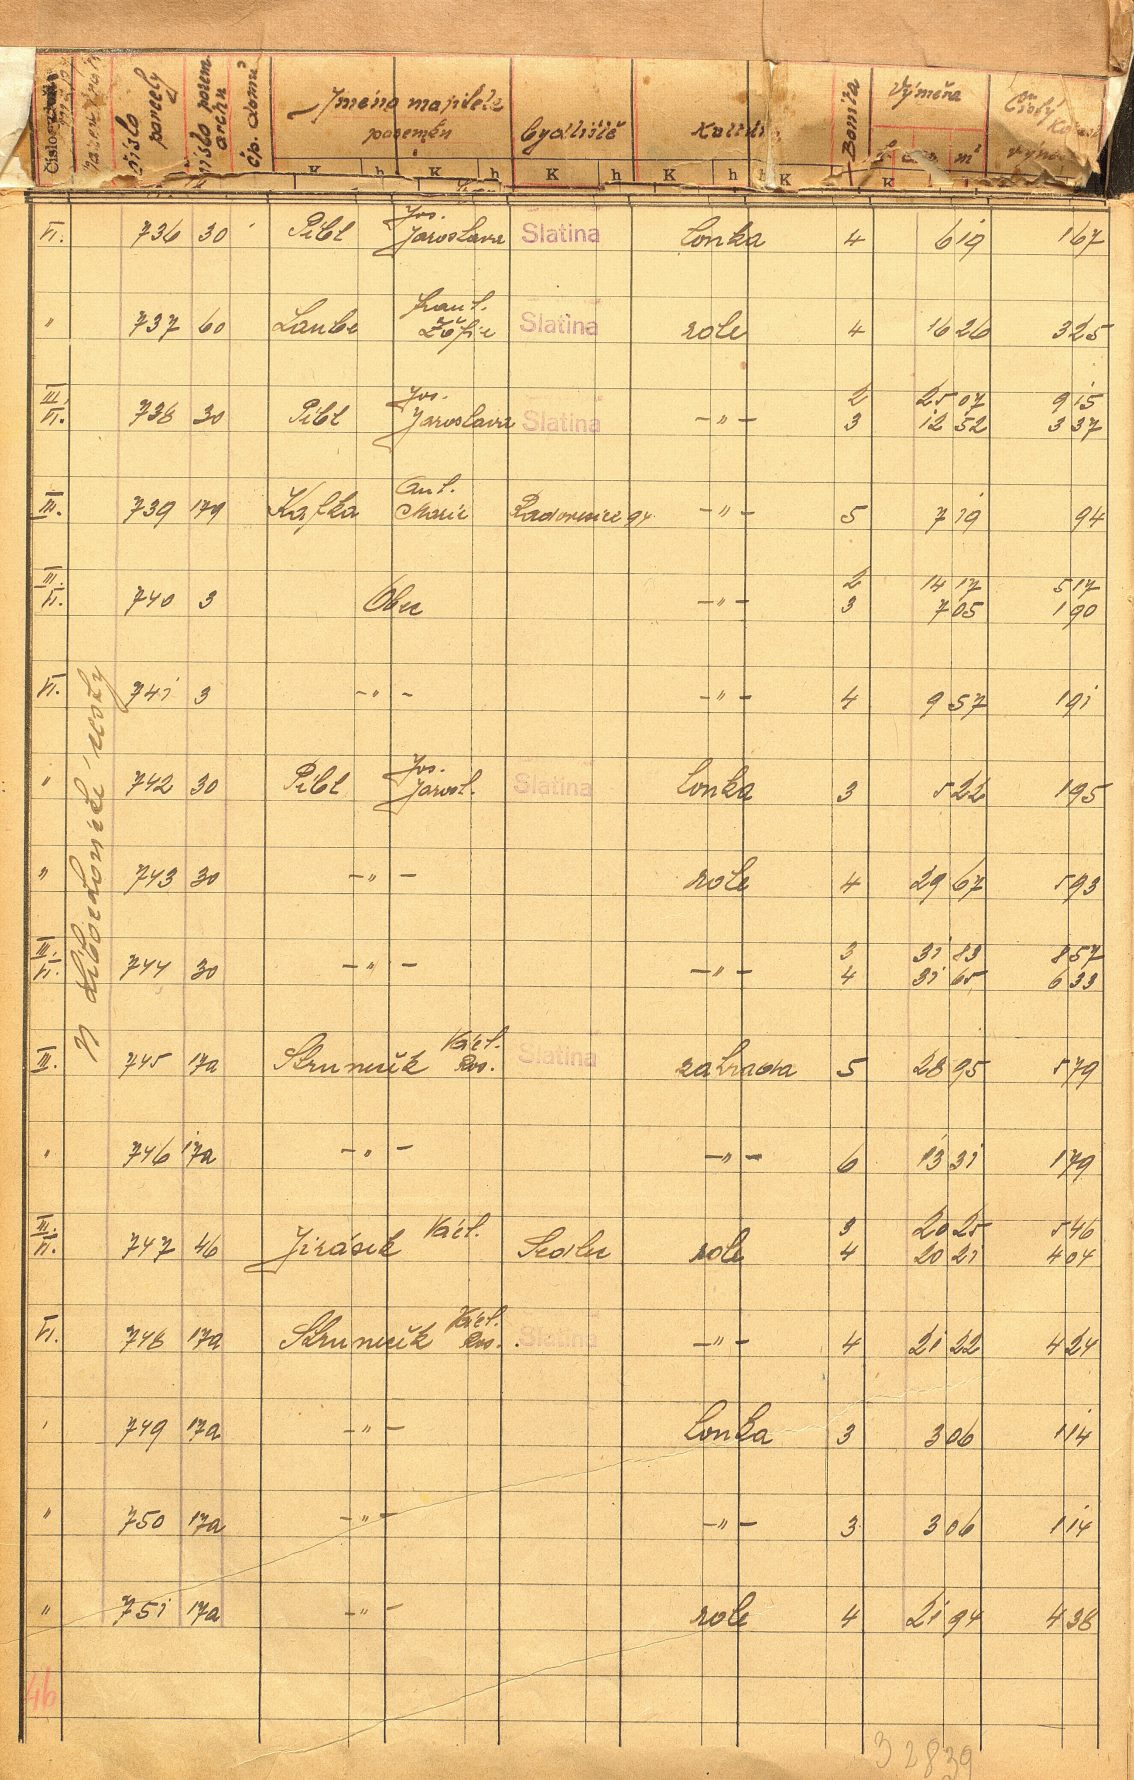 Číslo
číslo parcely
číslo pozem. archu
čp. domů
Jméno majitele pozemku
bydliště
Bonita
Výměra
Čistý
K h K h K h K h h K K m²
VI. 736 30 Pibl Jos. Jaroslava Slatina louka 4 6 19 1 67
" 737 60 Laube Frant. Žofie Slatina role 4 16 26 3 25
III. VI. 738 30 Pibl Jos. Jaroslava Slatina - " - 2 25 07 9 15
3 12 52 3 37
III. 739 179 Kafka Ant. Marie Radovesice 94 - " - 5 7 19 94
III. VI. 740 3 Obec - " - 2 14 17 5 17
3 7 05 1 90
VI. 741 3 - " - - " - 4 9 57 1 91
" 742 30 Pibl Jos. Jarosl. Slatina louka 3 5 22 1 95
" 743 30 - " - role 4 29 67 5 93
III. VI. 744 30 - " - - " - 3 31 83 8 57
4 31 65 6 33
III. 745 17a Struneček Václ. Ros. Slatina zahrada 5 28 95 5 79
" 746 17a - " - - " - 6 13 31 1 79
III. VI. 747 46 Jirásek Václ. Sedlec role 3 20 25 5 46
4 20 21 4 04
VI. 748 17a Struneček Václ. Ros. Slatina - " - 4 21 22 4 24
" 749 17a - " - louka 3 3 06 1 14
" 750 17a - " - - " - 3 3 06 1 14
" 751 17a - " - role 4 21 94 4 38
46
32839